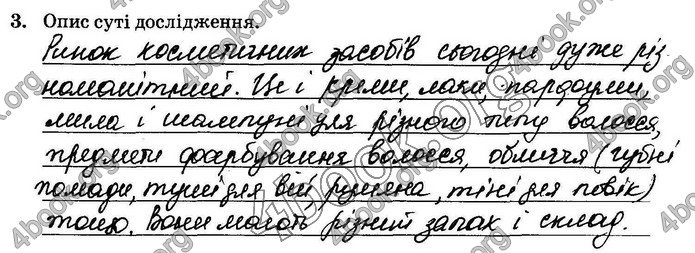 3. Опис суті дослідження.
Ринок косметичних засобів сьогодні дуже різ-
номанітний. Це і креми, лаки, парфуми,
мила і шампуні для різного типу волосся,
предмети фарбування волосся, обличчя (губні
помади, туші для вій, румяна, тіні для повік)
тощо. Вони мають різний запах і склад.
4book.org